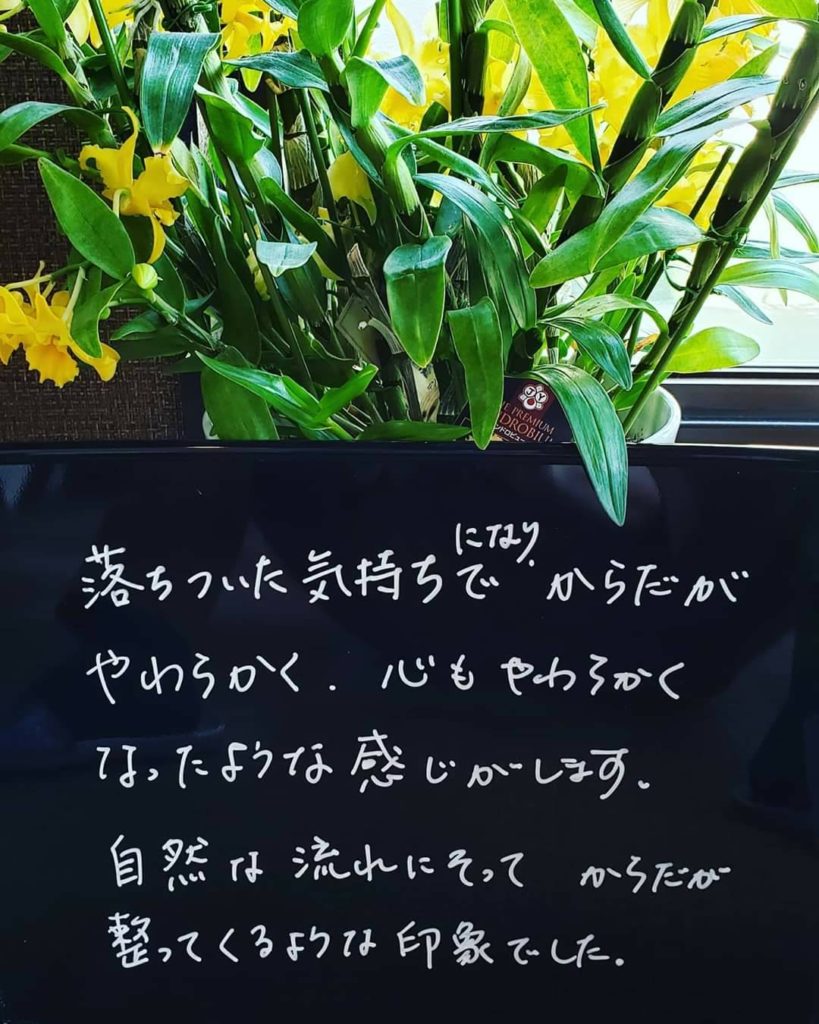 JY
PREMIUM
DROBIU
ンドロビュー
になり
落ちついた気持ちで、からだが
やわらかく、心もやわらかく
なったような感じがします。
自然な流れにそって からだが
整ってくるような印象でした。